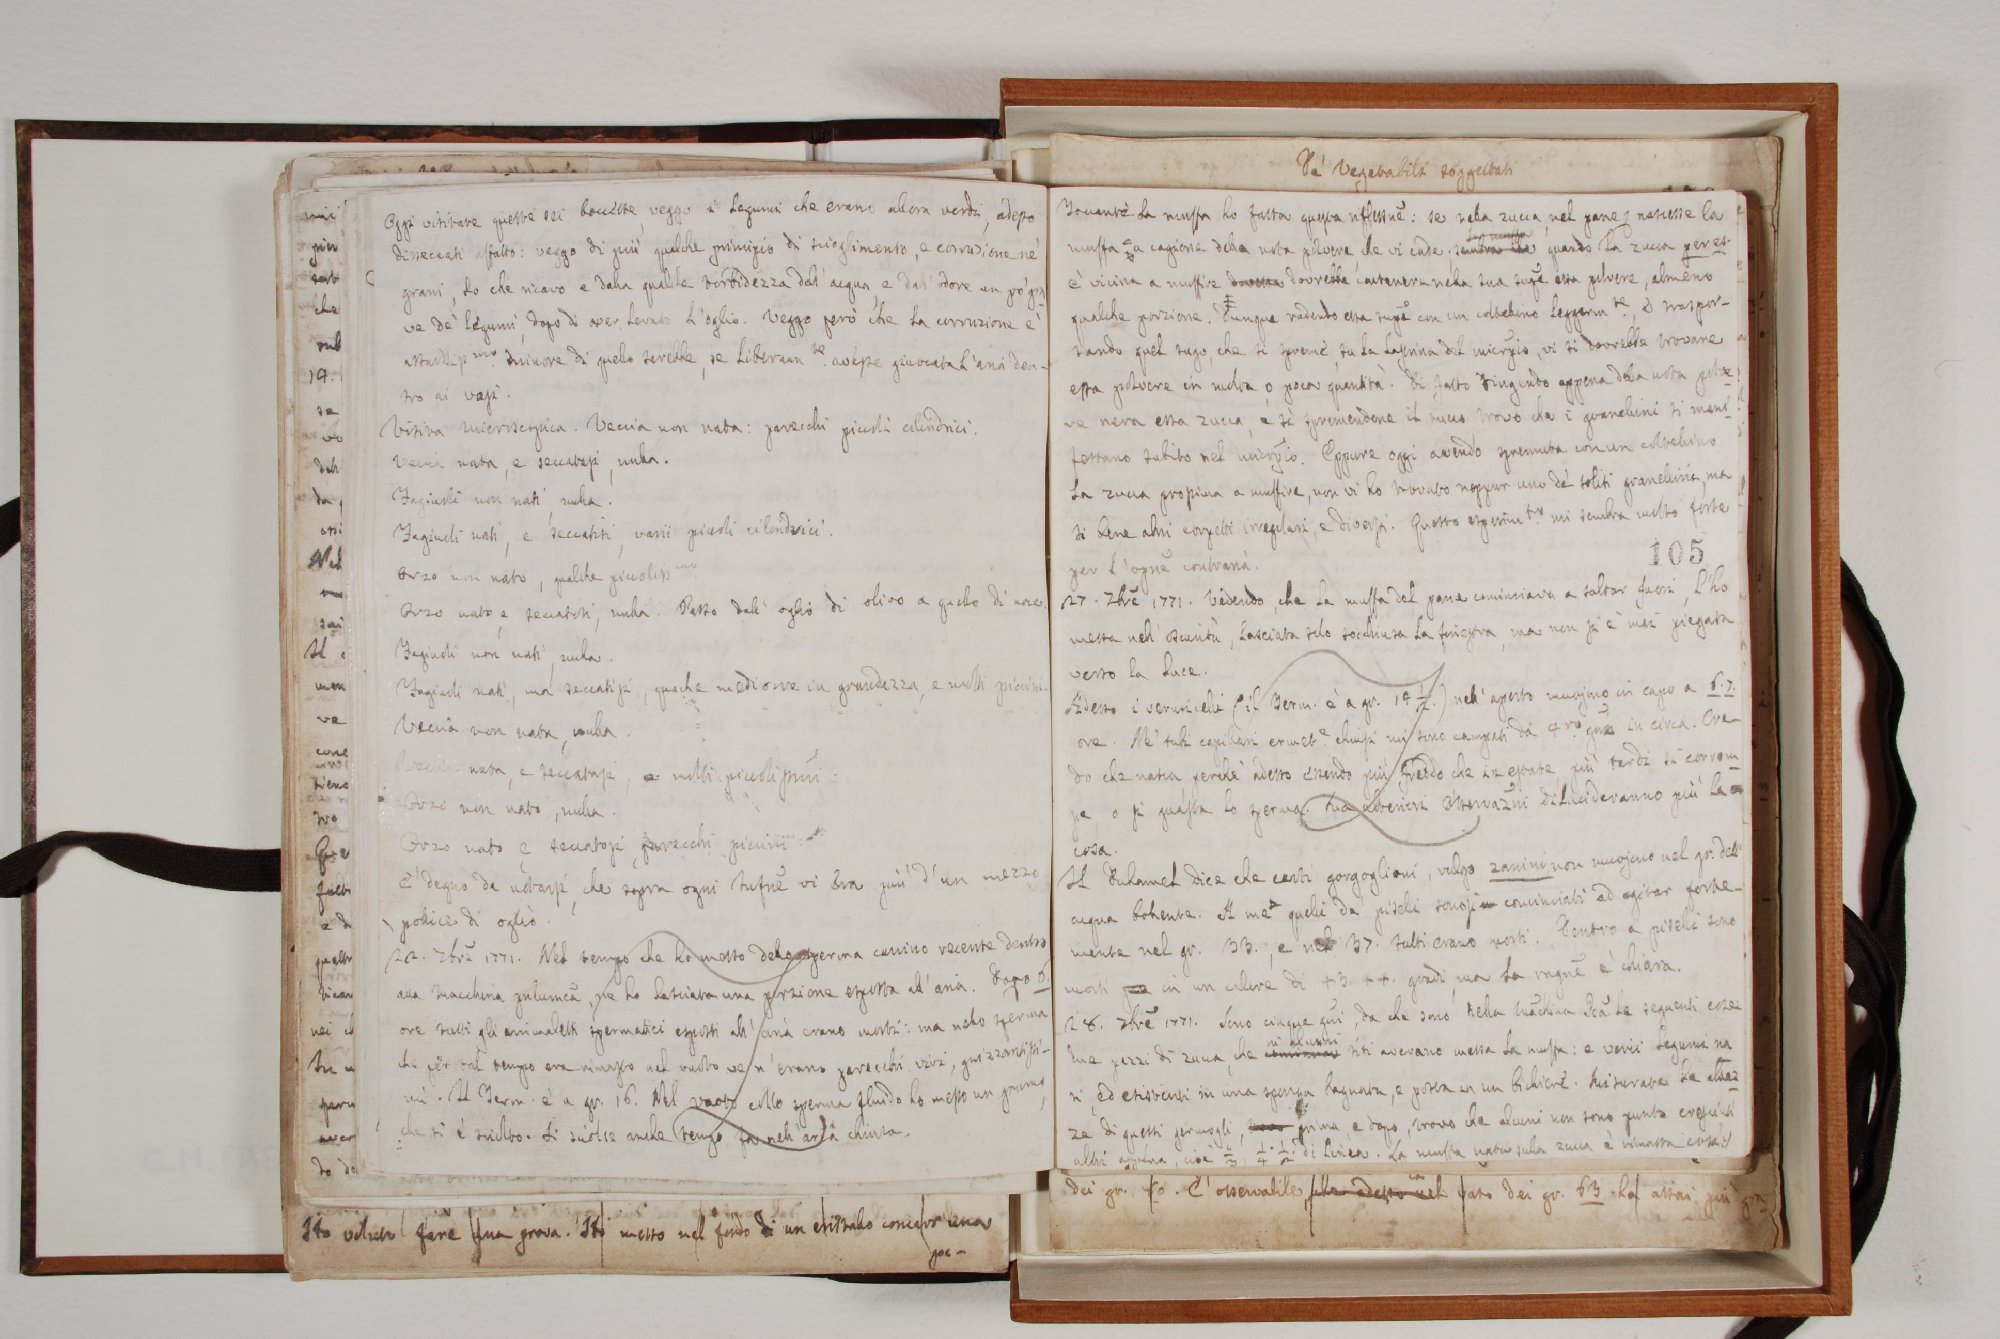 Oggi visitate queste sei boccette, veggo i legumi che erano allora verdi, adesso
disseccati affatto: veggo di più qualche principio di scioglimento, e corruzione ne'
grani, lo che ricavo e dalla qualche torbidezza dell'acqua, e dall'odore un pò gra
ve de' legumi, dopo di aver levato l'oglio. Veggo però che la corruzione è
minore di quello sarebbe, se liberam.te avesse giuocata l'aria den-
tro ai vasi.
Visita microscopica. Veccia non nata: parecchi piccoli cilindrici.
Veccia nata, e seccatasi, nulla.
Fagiuoli non nati, nulla.
Fagiuoli nati, e seccatisi, varii piccoli cilindrici.
Orzo non nato, qualche piccoliss.mo
Orzo nato, e seccatosi, nulla. Passo dall'oglio di olivo a quello di noce.
Fagiuoli non nati, nulla.
Fagiuoli nati, ma seccatisi, qualche mediocre in grandezza, e molti piccini.
Veccia non nata, nulla.
Veccia nata, e seccatasi, e molti piccolissimi
Orzo non nato, nulla.
Orzo nato e seccatosi, parecchi piccini
E' degno da notarsi, che sopra ogni vi era più d'un mezzo
pollice di oglio.
22. 7bre 1771. Nel tempo che ho messo dello sperma canino recente dentro
alla macchina pneumca, ne ho lasciata una porzione esposta all'aria. Dopo 6.
ore tutti gli animaletti spermatici esposti all'aria erano morti: ma nello sperma
che per tal tempo era rimasto nel vuoto ve n'erano parecchi vivi, guizzantissi-
mi. Il Term. è a gr. 16. Nel vuoto collo sperma fluido ho messo un grumo,
che si è sciolto. Si sciolse anche tempo fa nell'aria chiusa.
De' Vegetabili soggettati
Toccante la muffa ho fatta questa riflessne: se nella zucca, nel pane nascesse la
muffa a cagione della nota polvere, che vi cada quando la zucca per es.
è vicina a muffire dovrebbe contenere nella sua supe essa polvere, almeno
qualche porzione. Dunque radendo essa supe con un coltellino leggerm.te, e traspor-
tando quel sugo, che si spreme, su la lastrina del micrpio, vi si dovrebbe trovare
essa polvere in molta, o poca quantità. Di fatto tingendo appena della nota polve
re nera essa zucca, e sì spremendone il succo trovo che i granellini si mani
festano subito nel micrpio. Eppure oggi avendo spremuta con un coltellino
la zucca propinqua a muffire, non vi ho trovato neppur uno de' soliti granellini, ma
si bene altri corpetti irregolari, e diversi. Questo esperim.to mi sembra molto forte
per l'opne contraria.
105
27. 7bre 1771. Vedendo, che la muffa del pane cominciava a saltar fuori, l'ho
messa nell'oscurità, lasciata solo socchiusa la finestra, ma non si è mai piegata
verso la luce.
Adesso i vermicelli (il Term. è a gr. 14 1/2.) nell'aperto muojono in capo a 6.7.
ore. Ne' tubi capillari ermet.e chiusi mi sono campati da 4.ro gni in circa. Cre-
do che nasca perchè adesso essendo più freddo che in estate, più tardi si corrom
pe, o si guasta lo sperma. Ma ulteriori Osservazni dilucideranno più la
cosa.
Il Duhamel dice che certi gorgoglioni, volgo zanini non muojono nel gr. dell'
acqua bollente. A me quelli da piselli sonosi cominciati ad agitar forte-
mente nel gr. 33., e nel 37. tutti erano morti. Dentro a piselli sono
morti in un calore di 43. 44. gradi, ma la ragne è chiara.
28. 7bre 1771. Sono cinque gni, da che sono nella Macchina Pca le seguenti cose:
due pezzi di zucca, che in alcuni siti avevano messa la muffa: e varii legumi na
ti, ed esistenti in una sponga bagnata, e posta in un bichiere. Misurate le altez
ze di questi germogli, prima, e dopo, trovo che alcuni non sono punto cresciuti
altri appena, cioè 1/3, 1/4, 1/2 di linea. La muffa nata sulla zucca è rimasta così
Ho voluto fare una prova. Ho messo nel fondo di un cristallo concavo una
po-
dei gr. 60. E' osservabile, che adesso nel vaso dei gr. 63 ho assai più gra